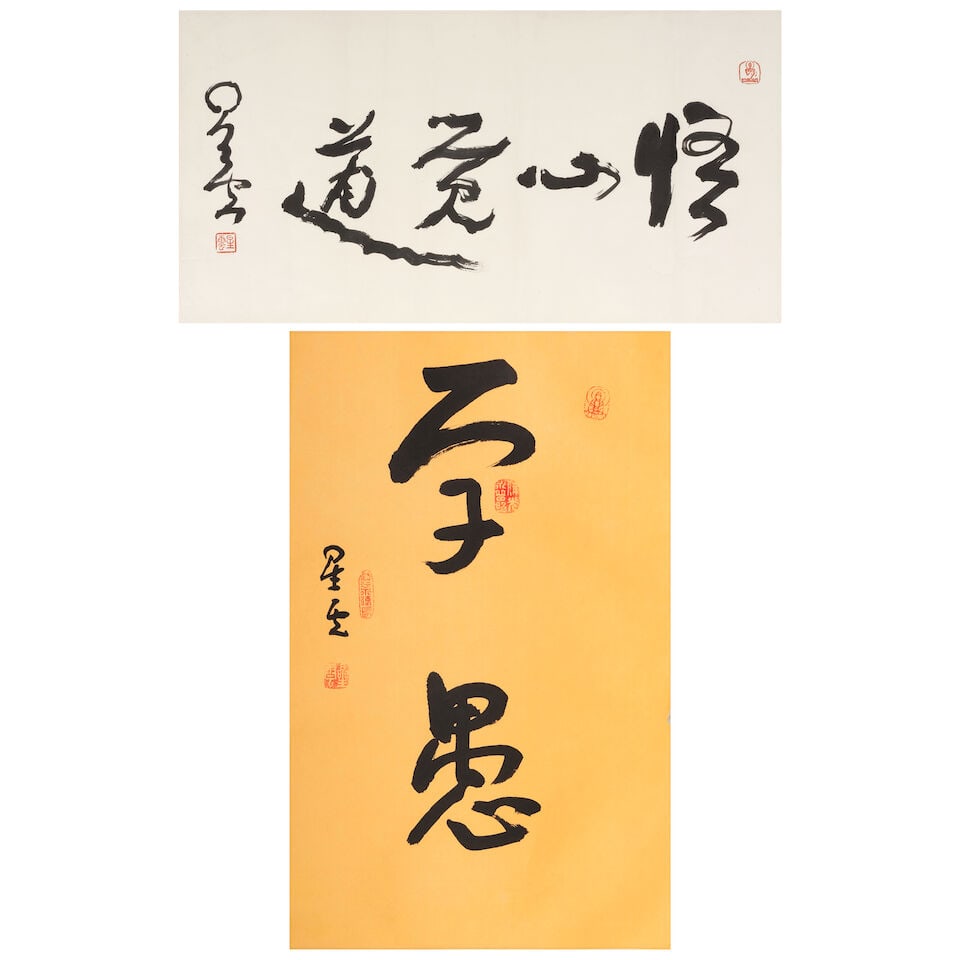 悟心覺道
星雲
學愚
星雲